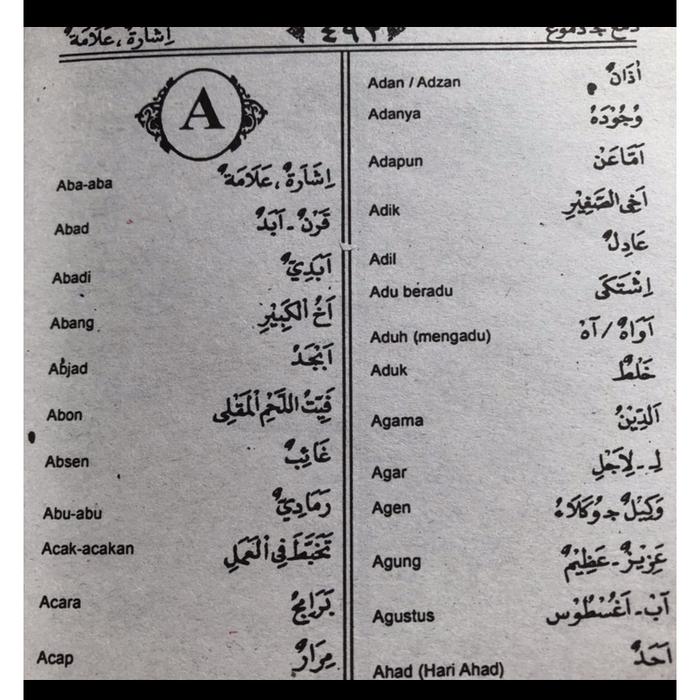 اِشَارَةٌ ، عَلَامَةٌ ٤٩٢ دمع ج دموع
A
Aba-aba اِشَارَةٌ ، عَلَامَةٌ
Abad قَرْنٌ - اَبَدٌ
Abadi اَبَدِيٌّ
Abang اَخُ الْكَبِيْرِ
Abjad اَبْجَدٌ
Abon فَتِيْتُ اللَّحْمِ الْمَقْلِى
Absen غَائِبٌ
Abu-abu رَمَادِيٌّ
Acak-acakan تَخَبَّطَ فِى الْعَمَلِ
Acara بَرَامِجُ
Acap مِرَارٌ
Adan / Adzan اَذَانٌ
Adanya وُجُوْدُهُ
Adapun اَمَّاعَنْ
Adik اَخِى الصَّغِيْرِ
Adil عَادِلٌ
Adu beradu اِشْتَكَى
Aduh (mengadu) آوَاهْ / آهْ
Aduk خَلْطٌ
Agama اَلدِّيْنُ
Agar لِـ - لِاَجْلِ
Agen وَكِيْلٌ ج وُكَلَاءُ
Agung عَزِيْزٌ - عَظِيْمٌ
Agustus آبْ - اَغُسْطُوْس
Ahad (Hari Ahad) اَحَدٌ